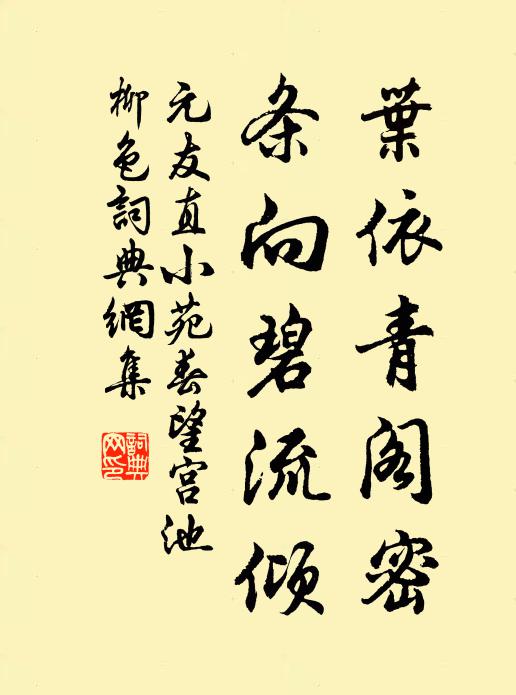 葉依青阁密
条向碧流倾
元友直小苑春望宫池
柳色詞典網集
詞典网印